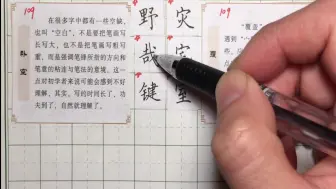 109
在很多字中都有一些空缺,
也叫“空白”,不是要把笔画写
长写大,也不是把笔画写粗写
重,而是强调笔锋所指的方向和
笔意的粘连与笔法的意境。这一
点对初学者来说可能会感到不好
理解,其实,写的时间长了,功
夫到了,自然就理解了。
补空
野
哉
键
灾
室
109
“覆盖